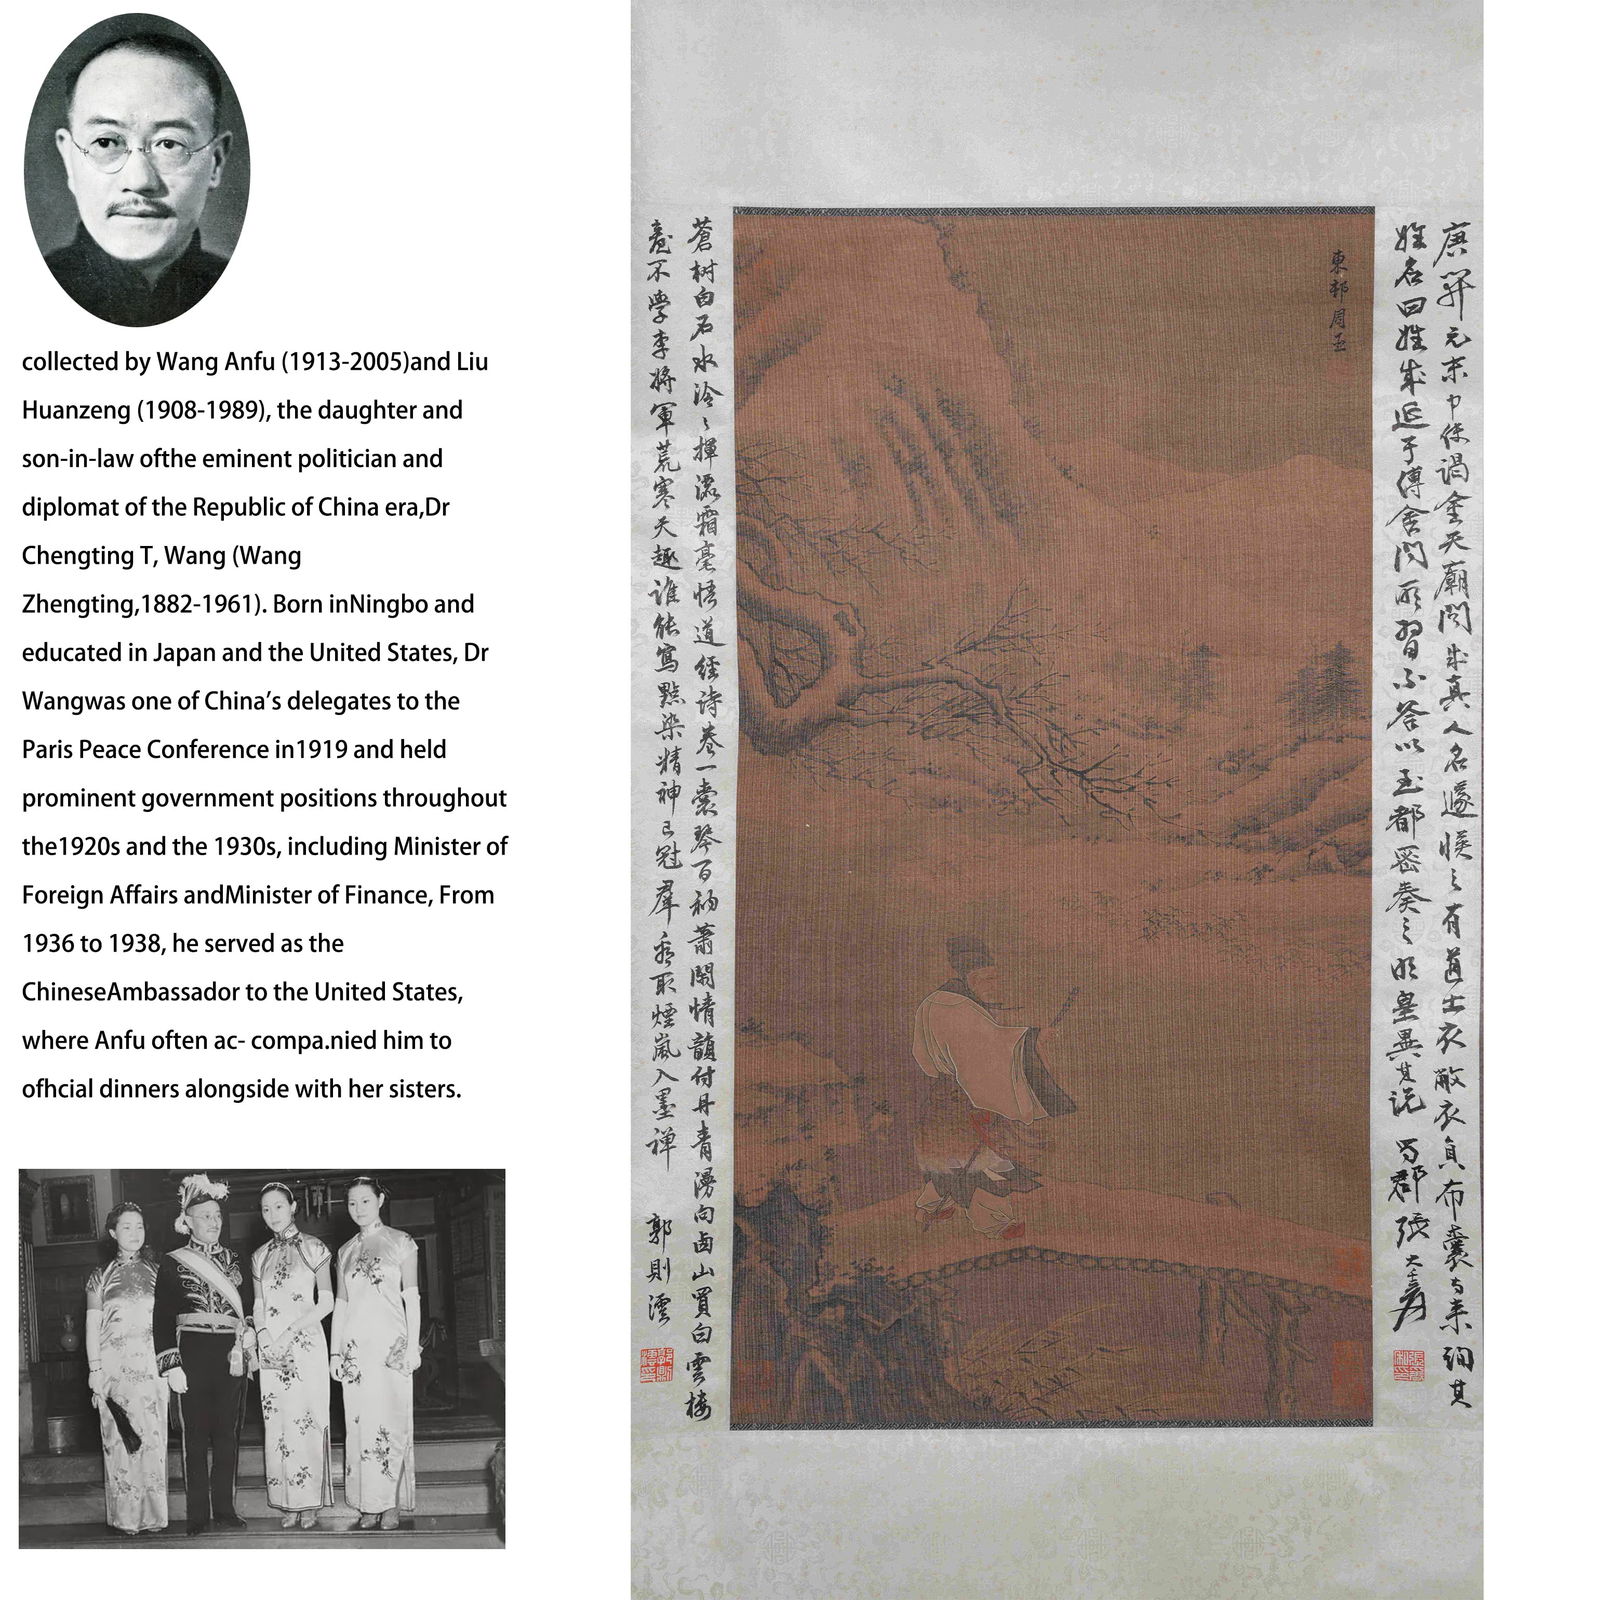 collected by Wang Anfu (1913-2005)and Liu
Huanzeng (1908-1989), the daughter and
son-in-law ofthe eminent politician and
diplomat of the Republic of China era,Dr
Chengting T, Wang (Wang
Zhengting,1882-1961). Born inNingbo and
educated in Japan and the United States, Dr
Wangwas one of China’s delegates to the
Paris Peace Conference in1919 and held
prominent government positions throughout
the1920s and the 1930s, including Minister of
Foreign Affairs andMinister of Finance, From
1936 to 1938, he served as the
ChineseAmbassador to the United States,
where Anfu often ac- compa.nied him to
ofhcial dinners alongside with her sisters.
唐開元末中使謁金天廟問成真人名遂候之有道士衣敝衣負布囊来詢其
姓名曰姓成延于傳舍問所習不答以至都密奏之明皇異其説 蜀郡張大千爰
東邨周臣
蒼树白石水泠々揮灑霜毫悟道經诗卷一囊琴百衲蕭閑情韻付丹青向山買白雲樓
臺不學李將軍荒寒天趣谁能寫點染精神已冠羣取煙嵐入墨禅 郭則澐